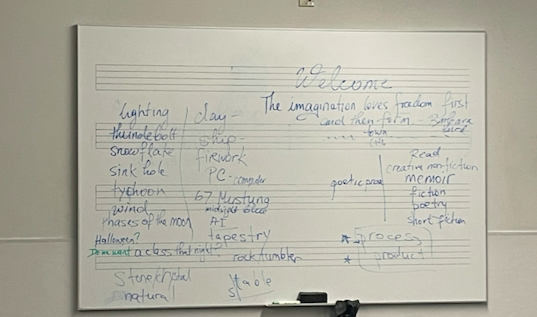 Welcome
The imagination loves freedom first
and then form - Barbara
.... town
lighting
thundebolt
snowflake
sink hole
typhoon
wind
phases of the moon
Halloween?
Do we want a class that night?
Stone/crystal
natural
clay-
ship-
firework
PC-computer
67 Mustang
midnight blue
AI
tapestry
rock tumbler
stable
poetic prose
Read
creative nonfiction
memoir
fiction
poetry
short fiction
* Process
* product